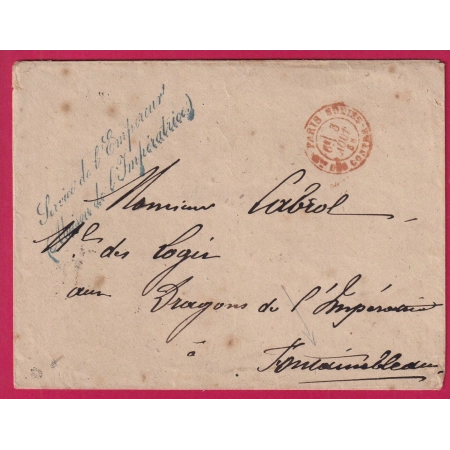 Service de l'Empereur
(Maison de l'Impératrice)
PARIS
3
AOUT
Monsieur Cabrol
Mal des Logis
aux Dragons de l'Impératrice
à
Fontainebleau